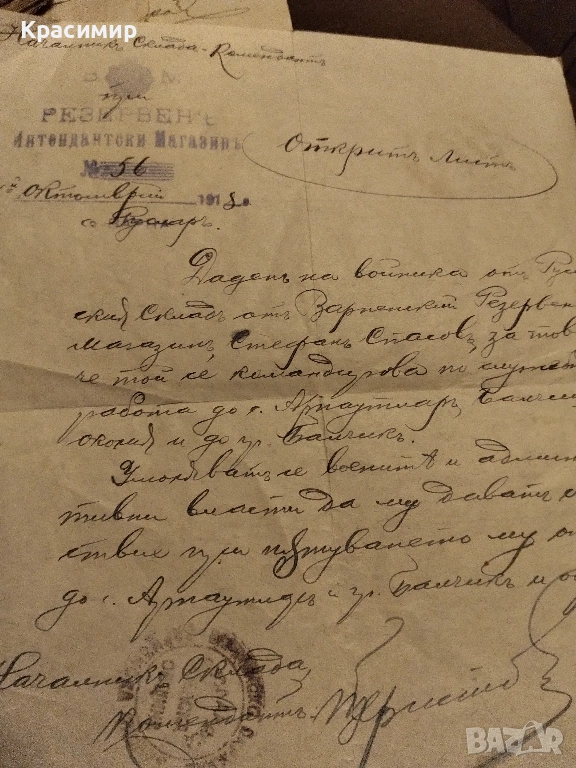 Красимир
Началникъ Склада - Комендантъ
В М
при
РЕЗЕРВЕНЪ
Интендантски Магазинъ
№ 56
октомврий 1918 г.
с.
Открытъ Листъ
Даденъ на войника отъ
Складъ отъ Варненский Резервен
Магазинъ, Стефанъ Спасовъ, за тов
че той се командирова по служеб
работа до с. Арнаутлар, Балчиш
околия и до гр. Балчикъ.
Умоляватъ се военитѣ и админи
тивни власти да му даватъ с
ствия при пѫтуването му от
до с. и гр. Балчикъ и об
Началникъ Склада
Комендантъ
BAZAR